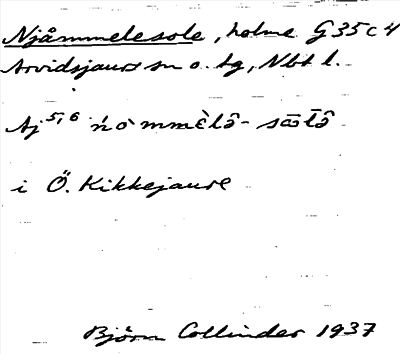 Njåmmelesole, holme G 35 c 4
Arvidsjaurs sn o. tg, Nbt l.
Aj 5, 6 ńo̯mmèlō̂- sō̄lō̂
i Ö. Kikkejaure
Björn Collinder 1937